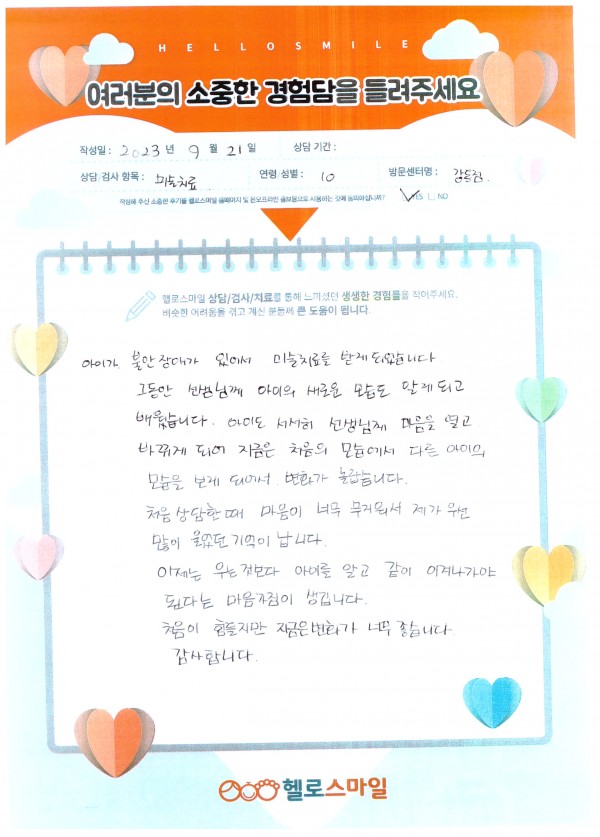 HELLOSMILE
여러분의 소중한 경험담을 들려주세요
작성일 : 2023 년 9 월 21 일 상담 기간 :
상담/검사 항목 : 미술치료 연령·성별 : 10 방문센터명 : 강동점
작성해 주신 소중한 후기를 헬로스마일 홈페이지 및 온오프라인 홍보용으로 사용하는 것에 동의하십니까? YES NO
헬로스마일 상담/검사/치료를 통해 느끼셨던 생생한 경험들을 적어주세요.
비슷한 어려움을 겪고 계신 분들께 큰 도움이 됩니다.
아이가 불안장애가 있어서 미술치료를 받게되었습니다
그동안 선생님께 아이의 새로운 모습도 알게 되고
배웠습니다. 아이도 서서히 선생님께 마음을 열고
바뀌게 되어 지금은 처음의 모습에서 다른 아이의
모습을 보게 되어서 변화가 놀랍습니다.
처음 상담할때 마음이 너무 무거워서 제가 우선
많이 울었던 기억이 납니다.
이제는 우는것보다 아이를 알고 같이 이겨나가야
된다는 마음가짐이 생깁니다.
처음이 힘들지만 지금은변화가 너무 좋습니다.
감사합니다.
헬로스마일